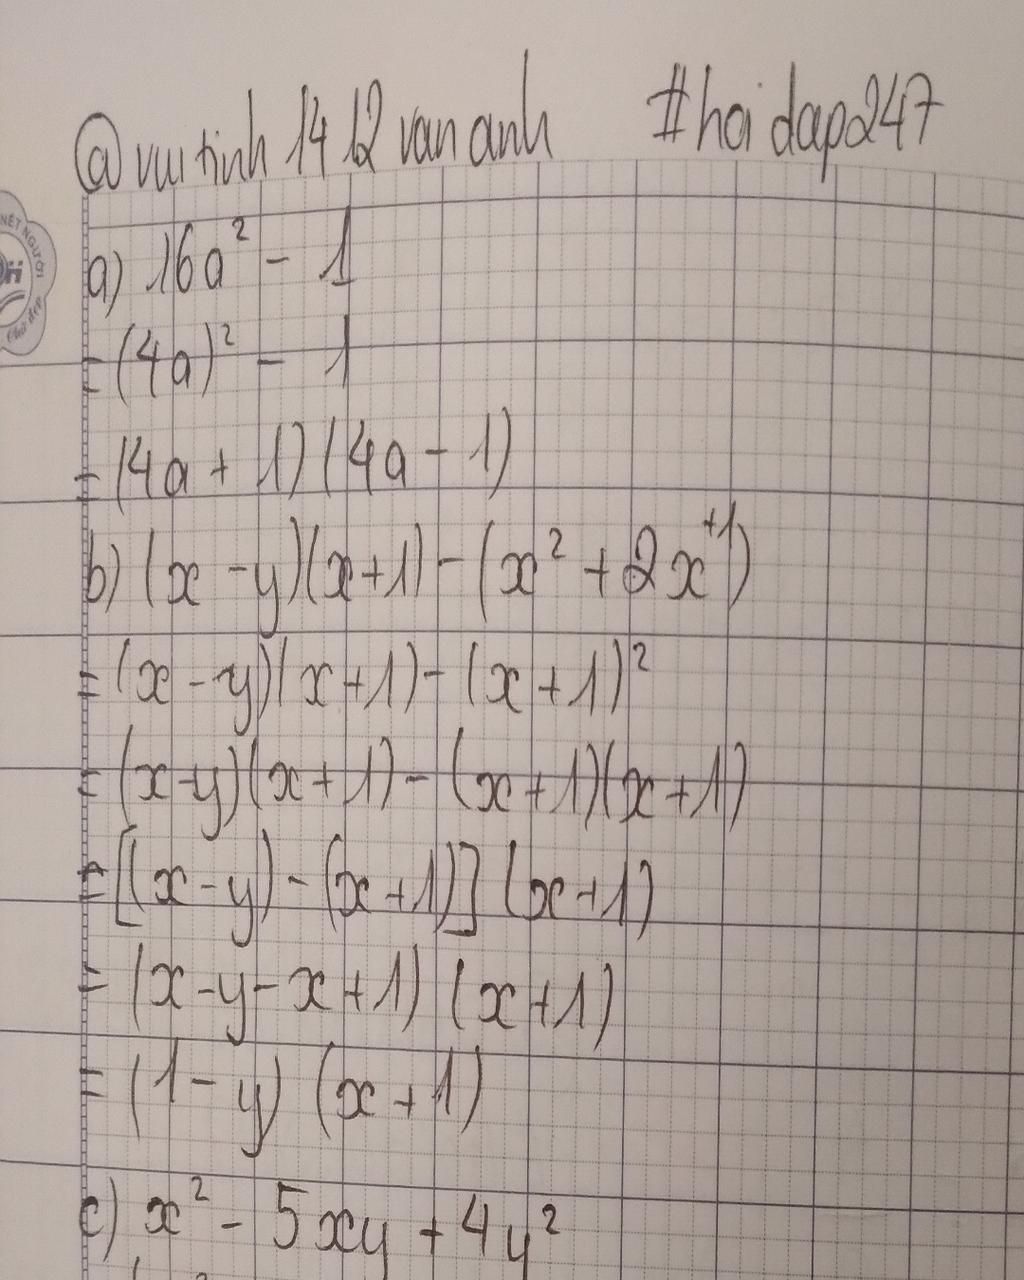 @vuitinh1412vananh #hoidap247
NÉT NGƯỜI
Chữ đẹp
a) 16a² - 1
= (4a)² - 1
= (4a + 1)(4a - 1)
b) (x - y)(x+1) - (x² + 2x+1)
= (x - y)(x+1) - (x+1)²
= (x-y)(x+1) - (x+1)(x+1)
= [(x-y) - (x+1)] (x+1)
= (x-y-x+1) (x+1)
= (1-y) (x+1)
c) x² - 5xy + 4y²